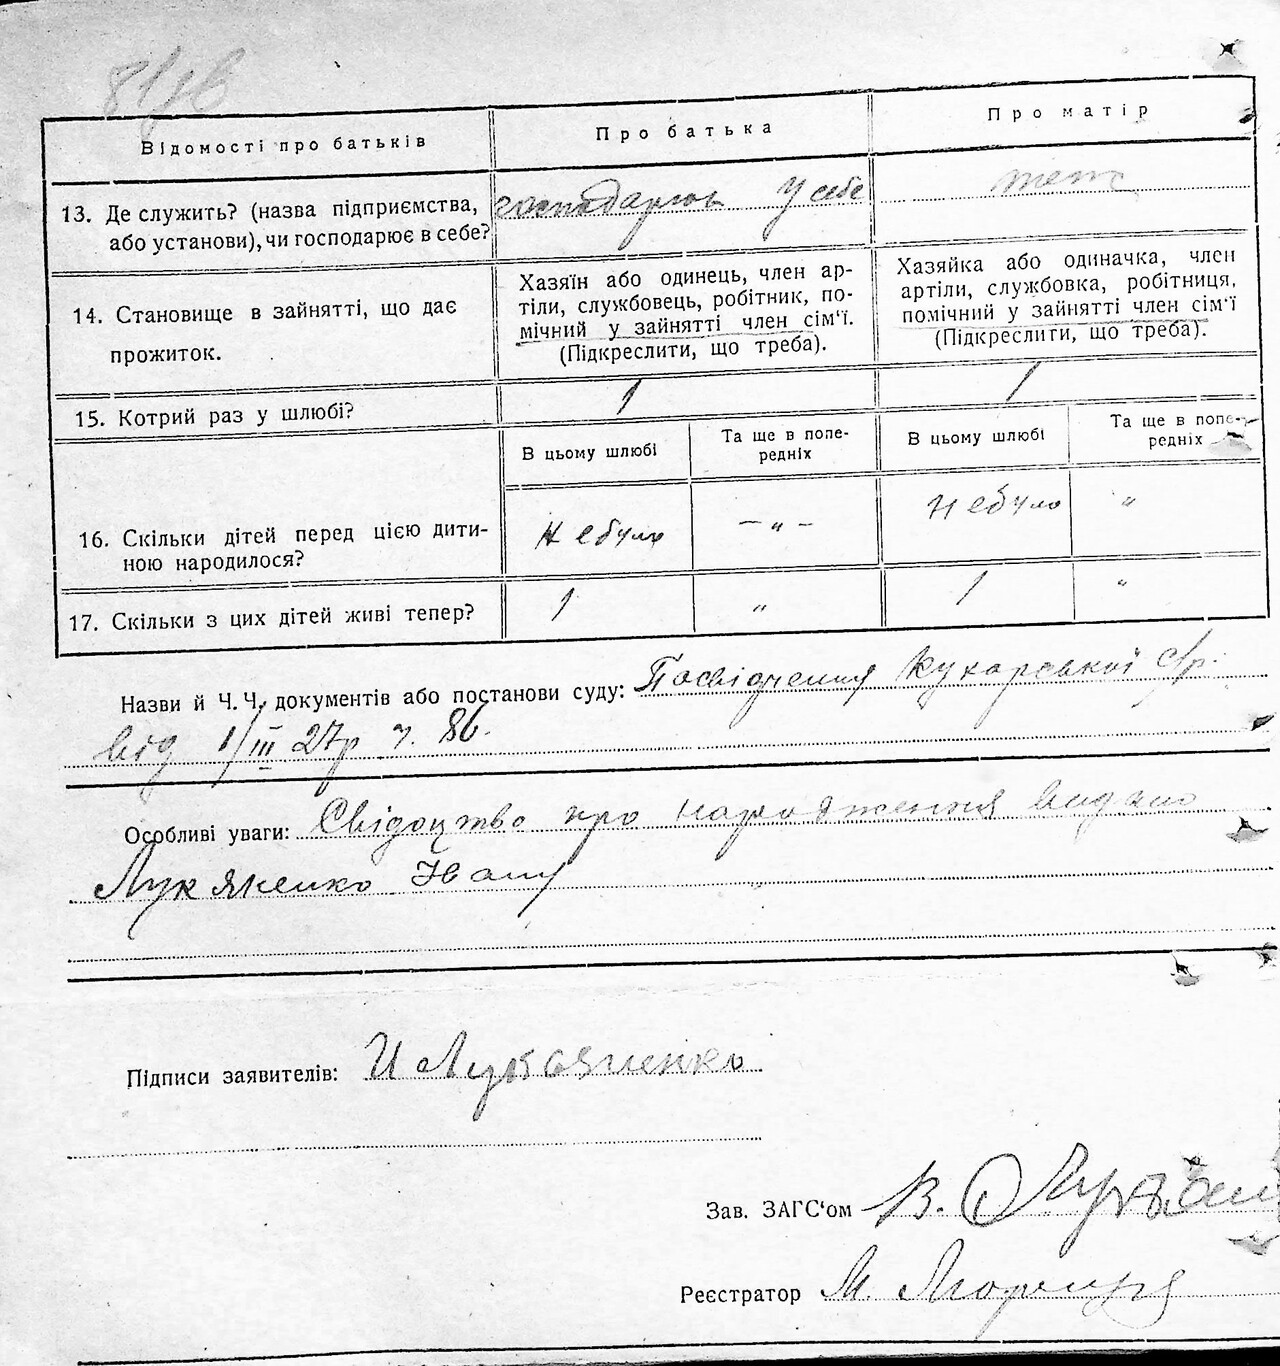 81зв
Відомості про батьків
Про батька
Про матір
13. Де служить? (назва підприємства,
або установи), чи господарює в себе?
господарює у себе
теж
14. Становище в зайнятті, що дає
прожиток.
Хазяїн або одинець, член ар-
тіли, службовець, робітник, по-
мічний у зайнятті член сім'ї.
(Підкреслити, що треба).
Хазяйка або одиначка, член
артіли, службовка, робітниця,
помічний у зайнятті член сім'ї
(Підкреслити, що треба).
15. Котрий раз у шлюбі?
1
1
В цьому шлюбі
Та ще в попе-
редніх
В цьому шлюбі
Та ще в попе-
редніх
16. Скільки дітей перед цією дити-
ною народилося?
не було
– „ –
не було
„
17. Скільки з цих дітей живі тепер?
1
„
1
„
Назви й Ч. Ч. документів або постанови суду: Посвідчення Кухарської с/р.
від 1/III 27р ч. 86.
Особливі уваги: Свідоцтво про народження видано
Лукяненко Івану
Підписи заявителів: И Лукьяненко
Зав. ЗАГС'ом В.
Реєстратор М.